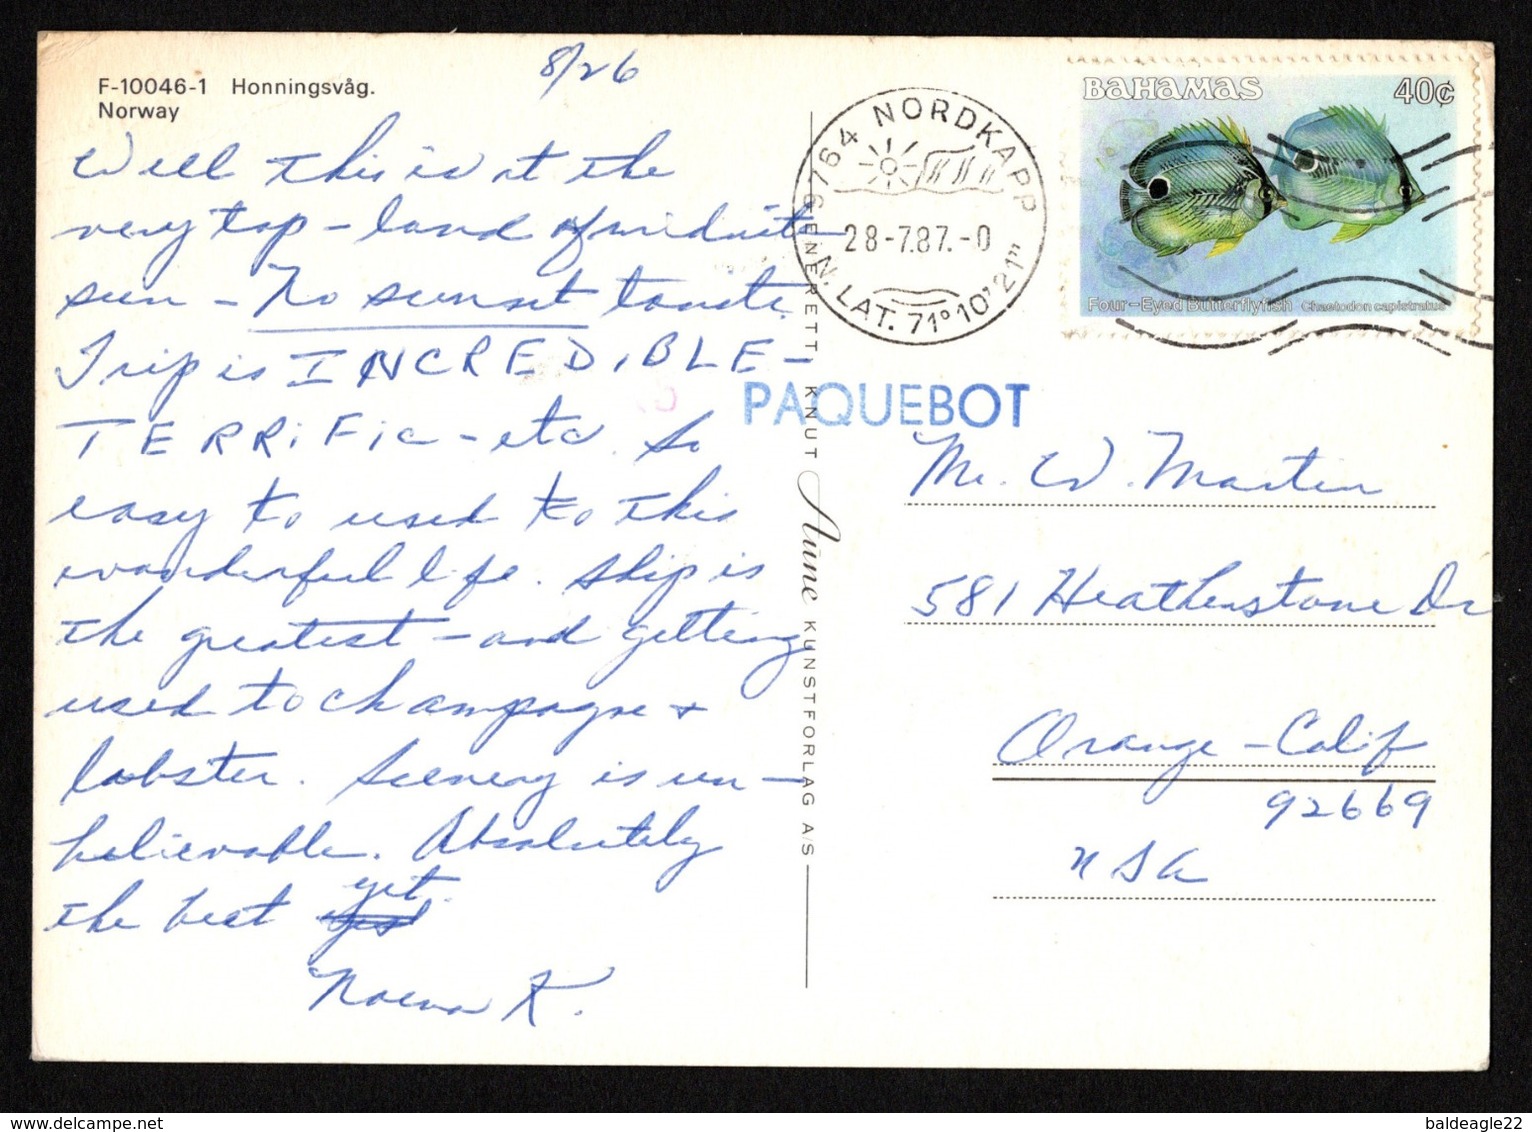 F-10046-1 Honningsvåg.
Norway
8/26
Well this is at the
very top - land of midnite
sun - No sunset tonite.
Trip is INCREDIBLE -
TERRIFIC - etc. So
easy to used to this
wonderful life. Ship is
the greatest - and getting
used to champagne +
lobster. Scenery is un-
believable. Absolutely
the best yet.
K.
ENERETT KNUT Aune KUNSTFORLAG A/S
9764 NORDKAPP
28-7.87.-0
N. LAT. 71° 10' 21"
BAHAMAS 40¢
Four-Eyed Butterflyfish Chaetodon capistratus
PAQUEBOT
Mr. W. Martin
581 Heatherstone Dr
Orange - Calif
92669
USA
baldeagle22